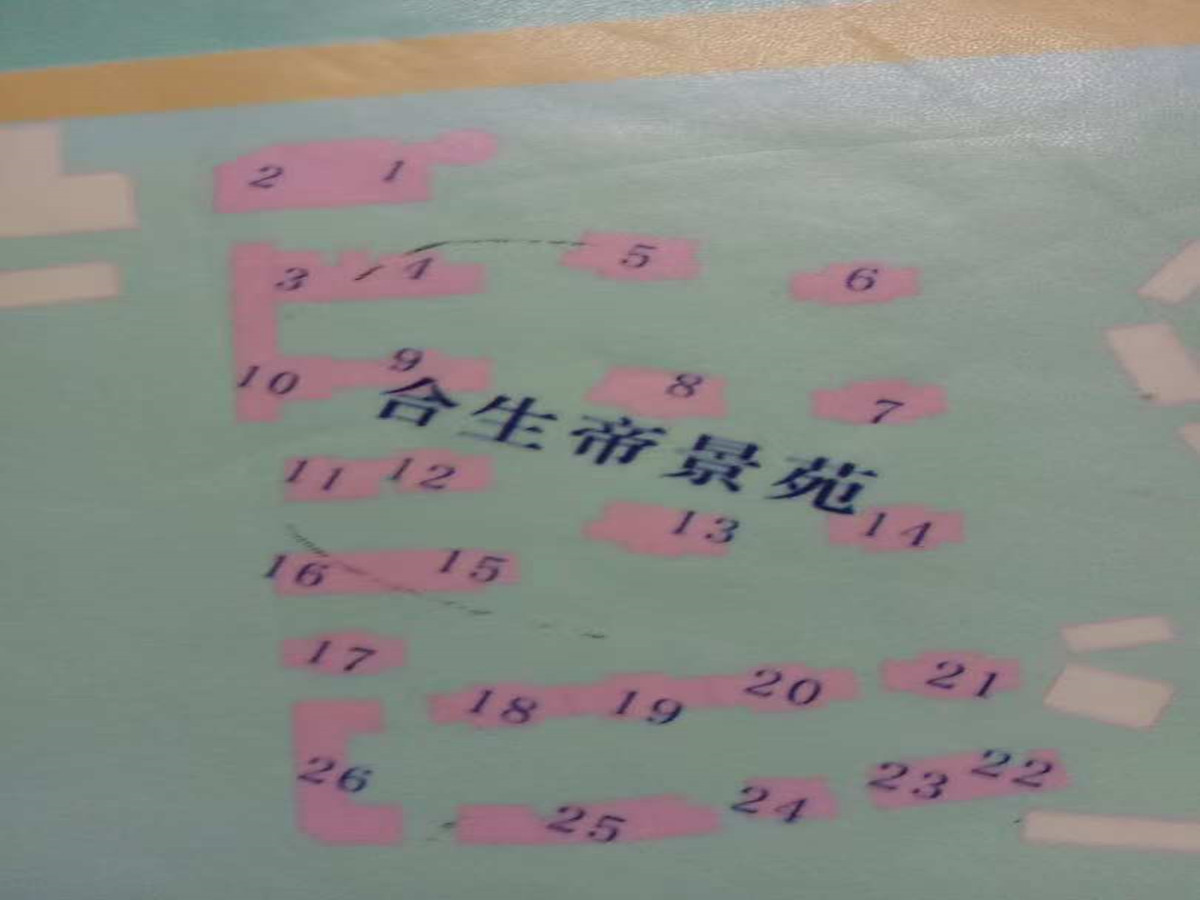 2 1
3 4 5 6
10 9 8 7
合生帝景苑
11 12 13 14
16 15
17
18 19 20 21
26 25 24 23 22